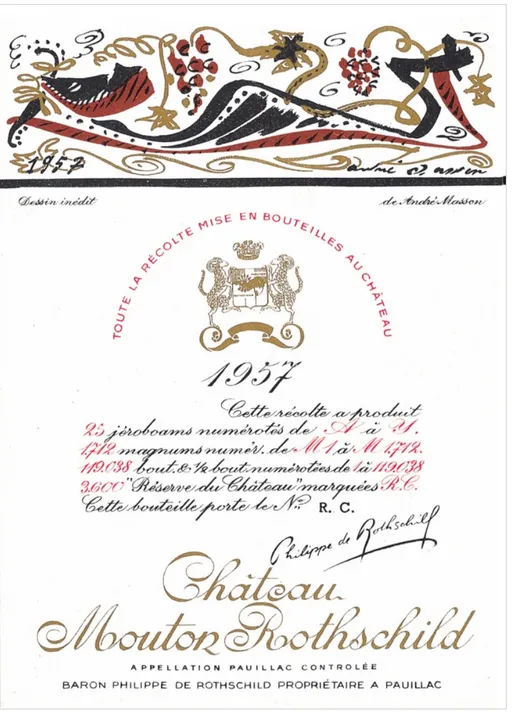 1957
andré Masson
Dessin inédit
de André Masson
TOUTE LA RÉCOLTE MISE EN BOUTEILLES AU CHÂTEAU
1957
Cette récolte a produit
25 jéroboams numérotés de A à Y.
1.712 magnums numér. de M 1 à M 1.712.
119.038 bout. & ½ bout. numérotées de 1 à 119.038
3.600 "Réserve du Château" marquées R.C.
Cette bouteille porte le Nº R. C.
Philippe de Rothschild
Château
Mouton Rothschild
APPELLATION PAUILLAC CONTROLÉE
BARON PHILIPPE DE ROTHSCHILD PROPRIÉTAIRE A PAUILLAC